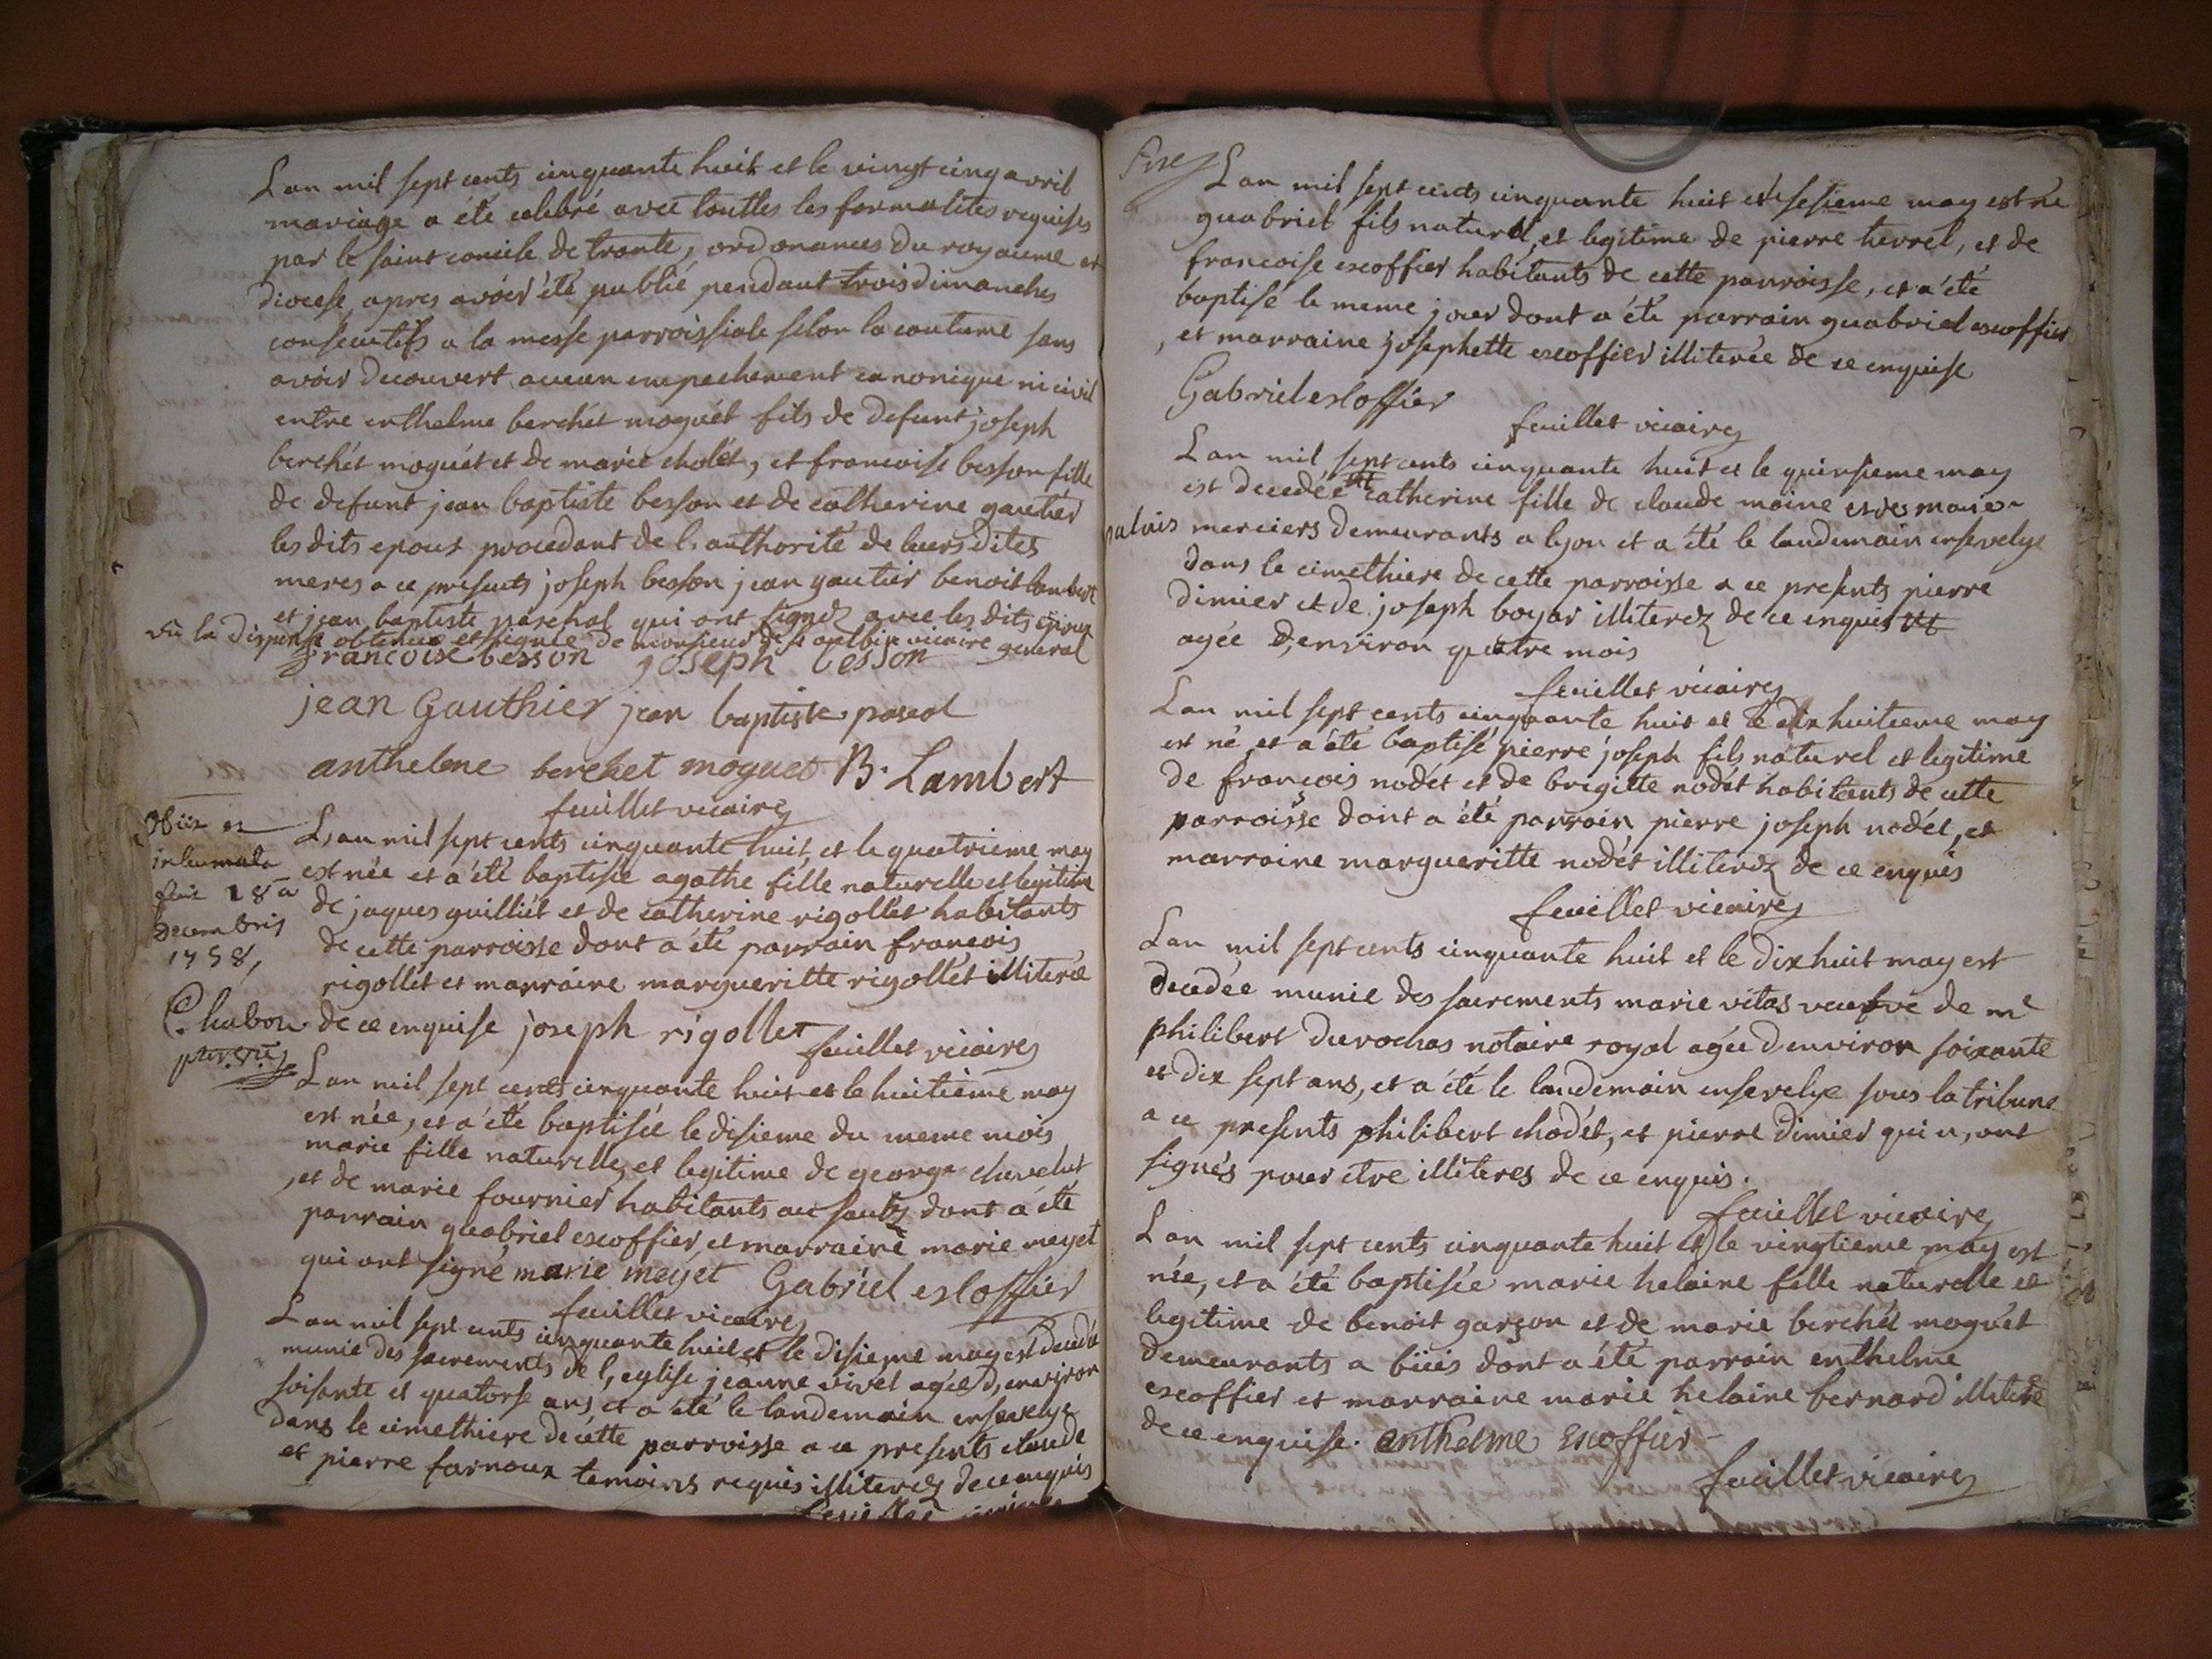 L'an mil sept cents cinquante huit et le vingt cinq avril
mariage a été celebré avec touttes les formalités requises
par le saint concile de trante, ordonances du royaume et
diocese, apres avoir été publié pendant trois dimanches
consecutifs a la messe parroissiale selon la coutume sans
avoir decouvert aucun empechement canonique ni civil
entre enthelme berchét moguét fils de defunt joseph
berchét moguét et de marie cholét, et francoise besson fille
de defunt jean baptiste besson et de catherine gautier
les dits epoux procedant de l'authorité de leurs dites
meres a ce presents joseph besson jean gautier benoit lambert
et jean baptiste paschal qui ont signéz avec les dits epoux
vû la dispense obtenue et signée de monsieur de st vicaire general
francoise besson joseph besson
jean Gauthier jean baptiste pascal
anthelme berchet moguet B. Lambert
feuillet vicaire
Obiit et
inhumata
fuit 18a
decembris
1758,
Chabou
L'an mil sept cents cinquante huit, et le quatrieme may
est née et a été baptisée agathe fille naturelle et legitime
de jaques guilliét et de catherine rigollét habitants
de cette parroisse dont a été parrain francois
rigollét et marraine margueritte rigollét illiterée
de ce enquise joseph rigollet
feuillet vicaire
L'an mil sept cents cinquante huit et le huitieme may
est née, et a été baptisée le disieme du meme mois
marie fille naturelle, et legitime de george chevelut
, et de marie fournier habitants au sault dont a été
parrain guabriel escoffier, et marraine marie meyet
qui ont signé marie meyet Gabriel esloffier
feuillet vicaire
L'an mil sept cents cinquante huit et le disieme may est decedée
munie des sacrements de l'eglise jeanne vivet agée d'environ
soisante et quatorse ans, et a été le landemain ensevelye
dans le cimethiere de cette parroisse a ce presents claude
et pierre farnoux temoins requis illiteréz de ce enquis
feuillet vicaire
L'an mil sept cents cinquante huit et le sesieme may est né
guabriel fils naturel, et legitime de pierre terrel, et de
francoise escoffier habitants de cette parroisse, et a été
baptisé le meme jour dont a été parrain guabriel escoffier
, et marraine josephette escoffier illiterée de ce enquise
Gabriel esloffier
feuillet vicaire
L'an mil sept cents cinquante huit et le quinsieme may
est decedée catherine fille de claude moine et de marie
palais merciers demeurants a lyon et a été le landemain ensevelye
dans le cimethiere de cette parroisse a ce presents pierre
dimier et de joseph boyar illiteréz de ce enquis
agée d'environ quatre mois
feuillet vicaire
L'an mil sept cents cinquante huit et le dix huitieme may
est né et a été baptisé pierre joseph fils naturel et legitime
de francois nodét et de brigitte nodét habitants de cette
parroisse dont a été parrain pierre joseph nodét, et
marraine margueritte nodét illiteréz de ce enquis
feuillet vicaire
L'an mil sept cents cinquante huit et le dix huit may est
decedée munie des sacrements marie vitas veufve de me
philibert durochas notaire royal agée d'environ soixante
et dix sept ans, et a été le landemain ensevelye sous la tribune
a ce presents philibert chodét, et pierre dimier qui n'ont
signés pour etre illiteres de ce enquis.
feuillet vicaire
L'an mil sept cents cinquante huit et le vingtieme may est
née, et a été baptisée marie helaine fille naturelle et
legitime de benoit garçon et de marie berchét moguét
demeurants a biiés dont a été parrain enthelme
escoffier et marraine marie helaine bernard illiterée
de ce enquise. enthelme Escoffier
feuillet vicaire